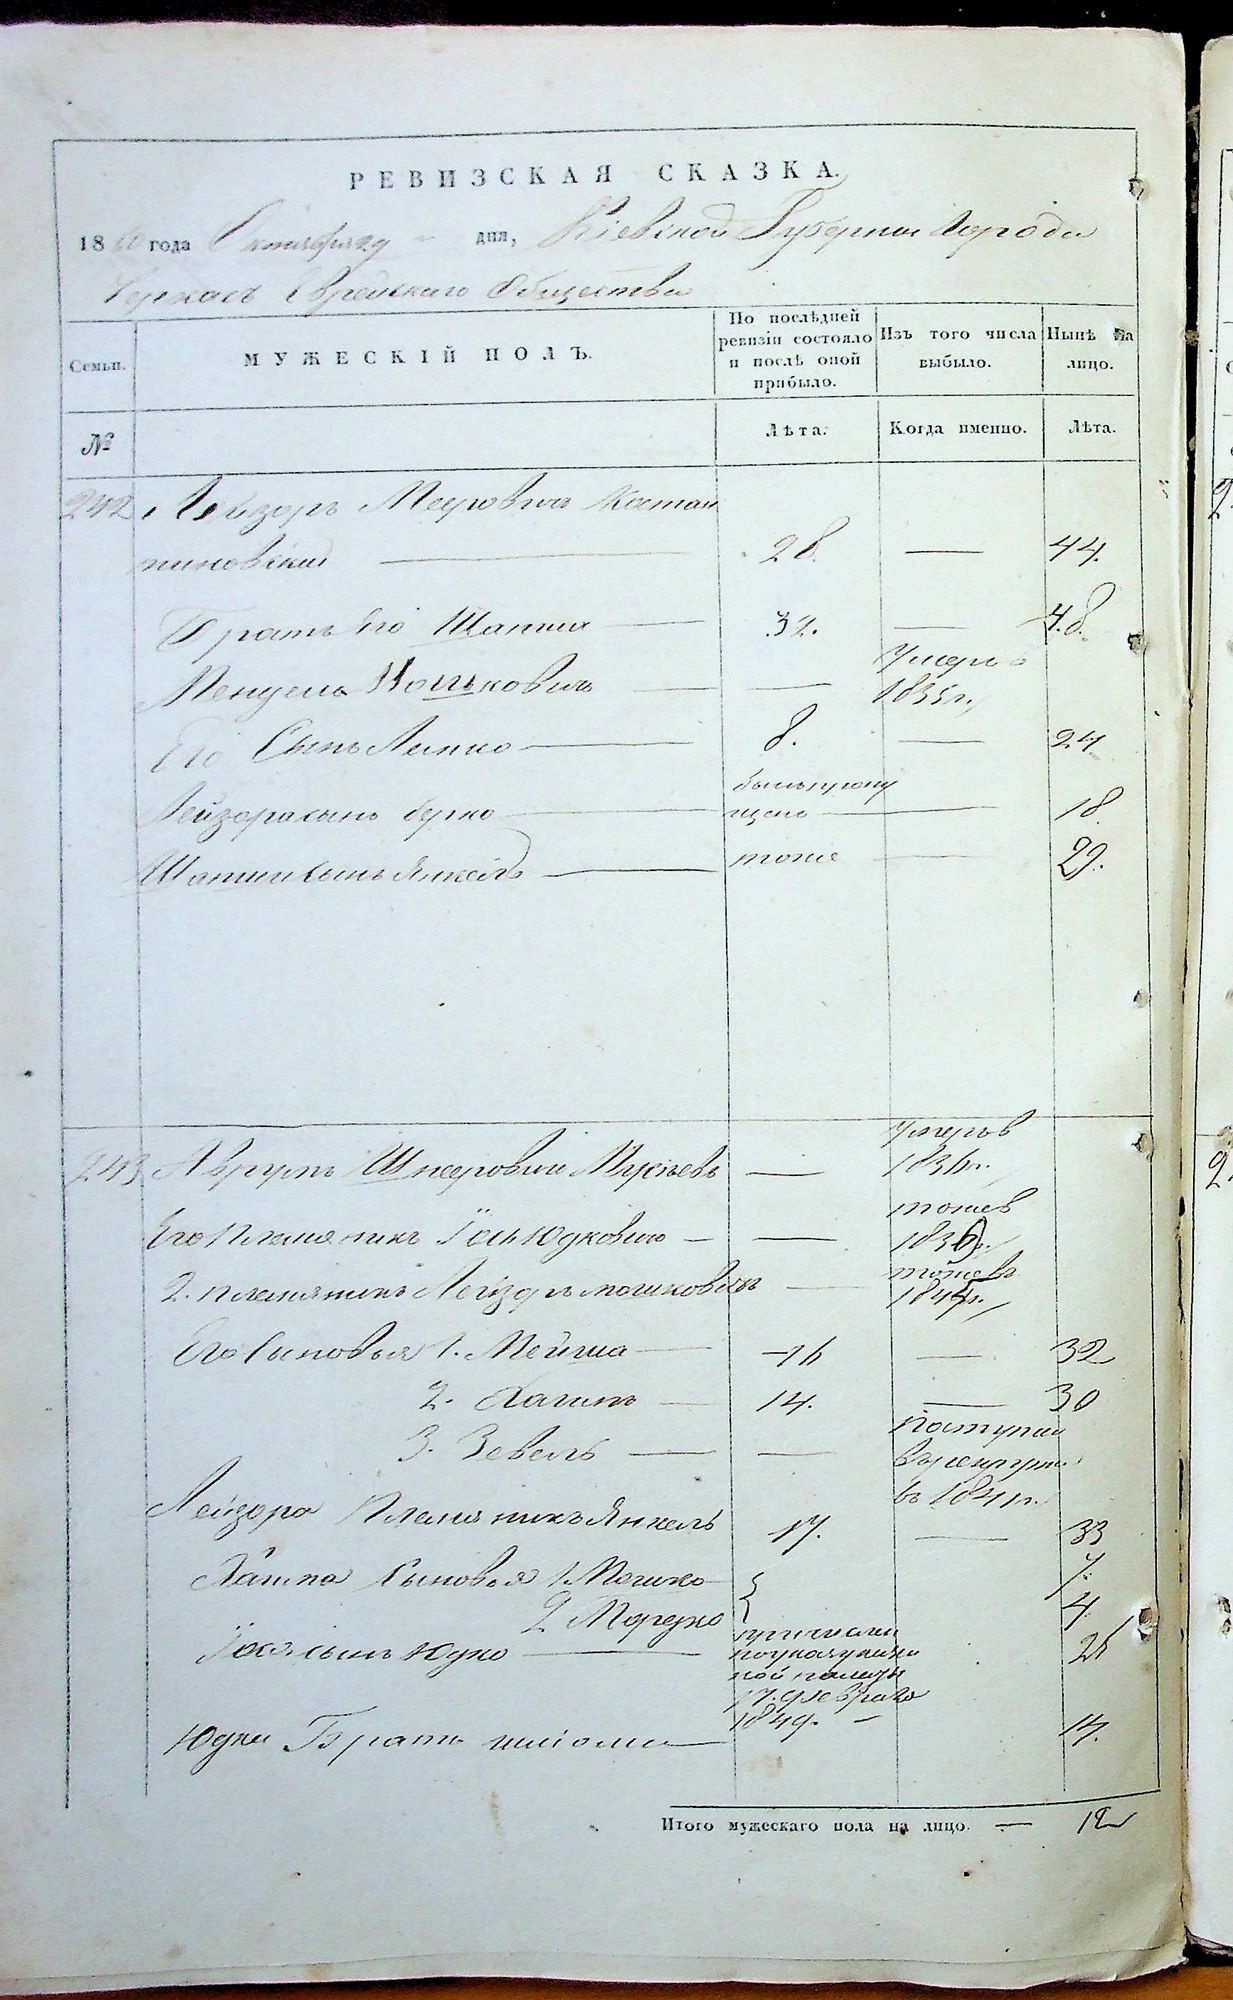 РЕВИЗСКАЯ СКАЗКА.
18 года Октября 29 дня, Кіевской Губерніи Города
Черкасъ Еврейскаго Общества
Семьи.
МУЖЕСКІЙ ПОЛЪ.
По послѣдней ревизіи состояло и послѣ оной прибыло.
Изъ того числа выбыло.
Нынѣ на лицо.
№
Лѣта.
Когда именно.
Лѣта.
242 Лейзоръ Мееровичъ Костан
тиновскій — 28. — 44.
Братъ Его Шапшія — 32. — 48.
Мендель Іошковичъ — — Умеръ в 1835 г.
Его Сынъ Лейко — 8. — 24.
Лейзора сынъ Берко — былъ пропу
щенъ — 18.
Шапшіи сынъ Янкель — тоже — 29.
243 Аврумъ Шмееровичъ — Умеръ в 1836 г.
Его племяникъ Іось Юдковичъ — — тоже в 183
2. племяникъ Лейзоръ Мошковичъ — тоже въ 1844 г.
Его Сыновья 1. Мейша — 16 — 32
2. Хаимъ — 14. — 30
3. Зевель — — поступил
в рекруты
въ 1841 г.
Лейзора Племяникъ Янкель 17. — 33
Хаима Сыновья 1. Мошко 7.
2 Мордко 4
Іося сынъ Юдко — причислен
по указу казен
ной палаты
17. февраля
1849. — 26
Юдки Братъ — 14.
Итого мужескаго пола на лицо. — 12